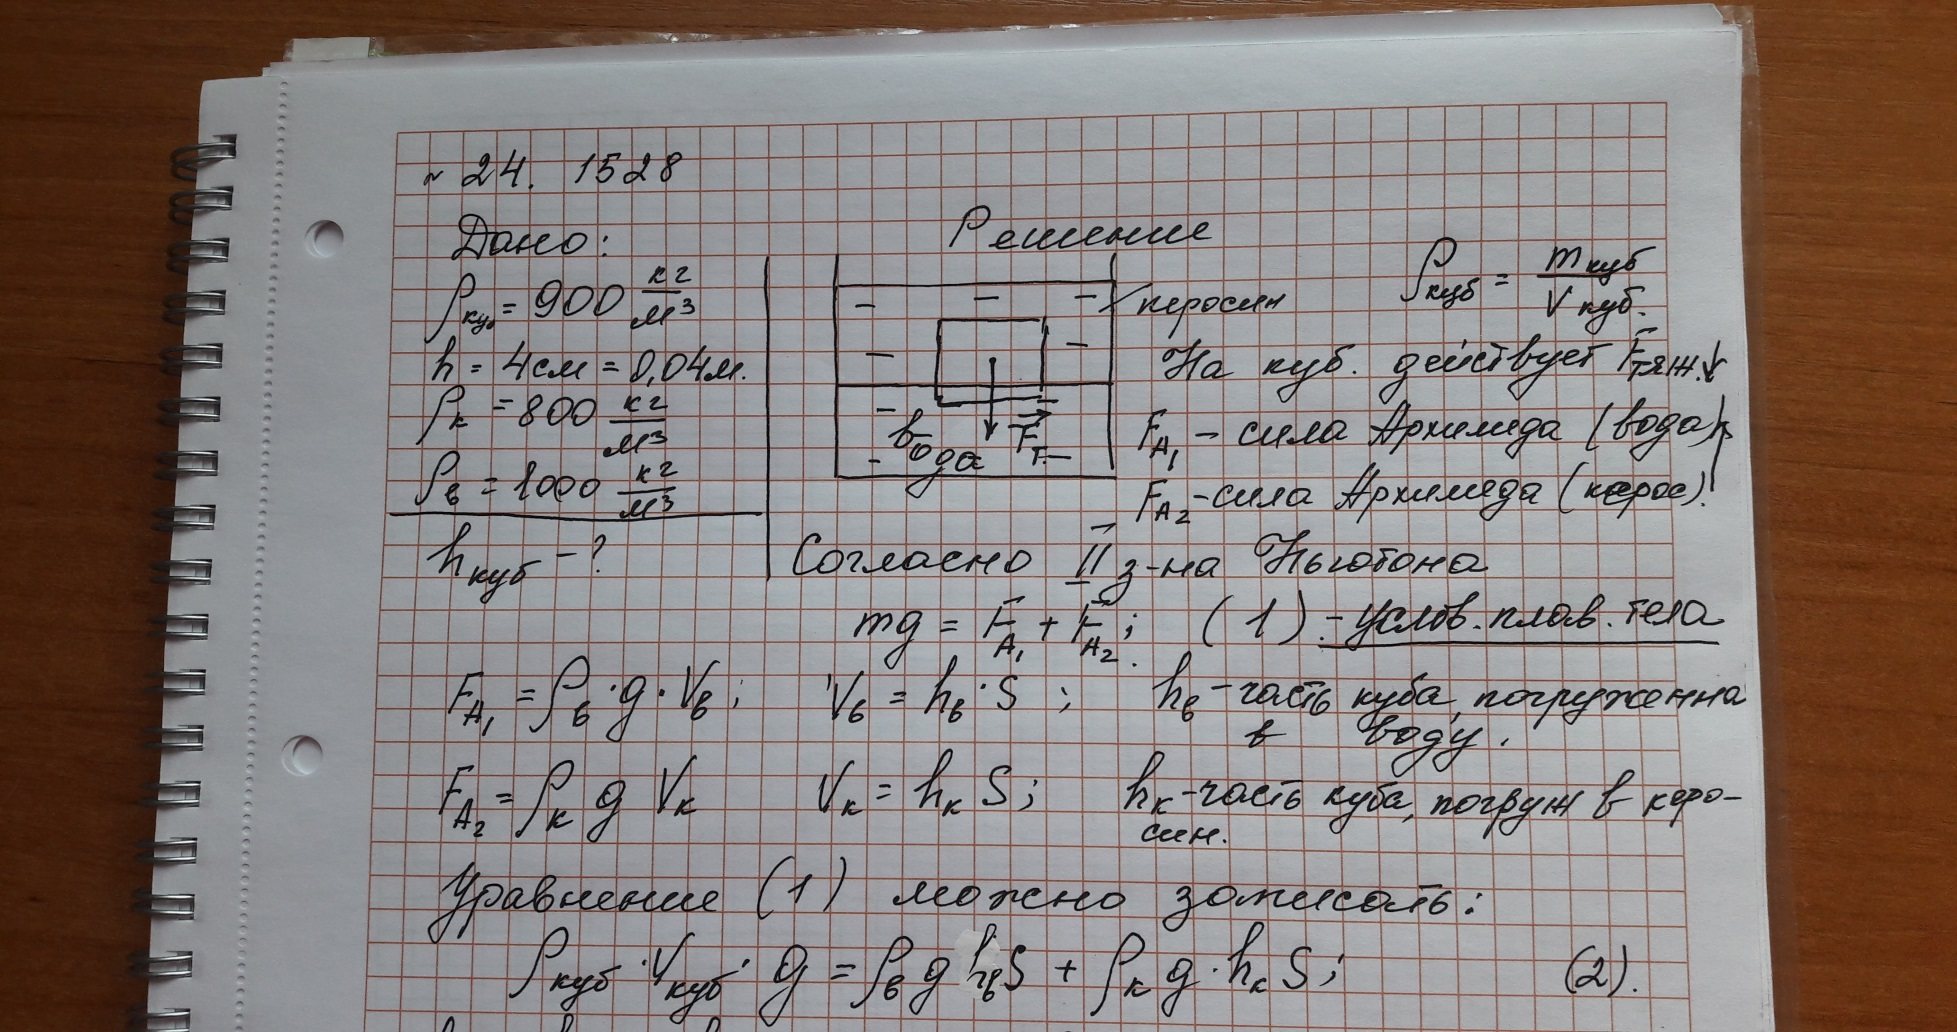 ~ 24. 1528
Дано:
ρкуб = 900 кг/м³
h = 4см = 0,04м.
ρк = 800 кг/м³
ρв = 1000 кг/м³
hкуб - ?
Решение
керосин
вода
Fт
ρкуб = mкуб / Vкуб.
На куб. действует Fтяж.↓
FA1 - сила Архимеда (вода)
FA2 - сила Архимеда (керос).
Согласно II з-на Ньютона
mg = FA1 + FA2; (1) - услов. плав. тела
FA1 = ρв · g · Vв; Vв = hв · S; hв - часть куба, погруженна
в воду.
FA2 = ρк g Vк Vк = hк S; hк - часть куба, погруж в керо-
син.
Уравнение (1) можно записать:
ρкуб · Vкуб · g = ρв g hв S + ρк g · hк S; (2).